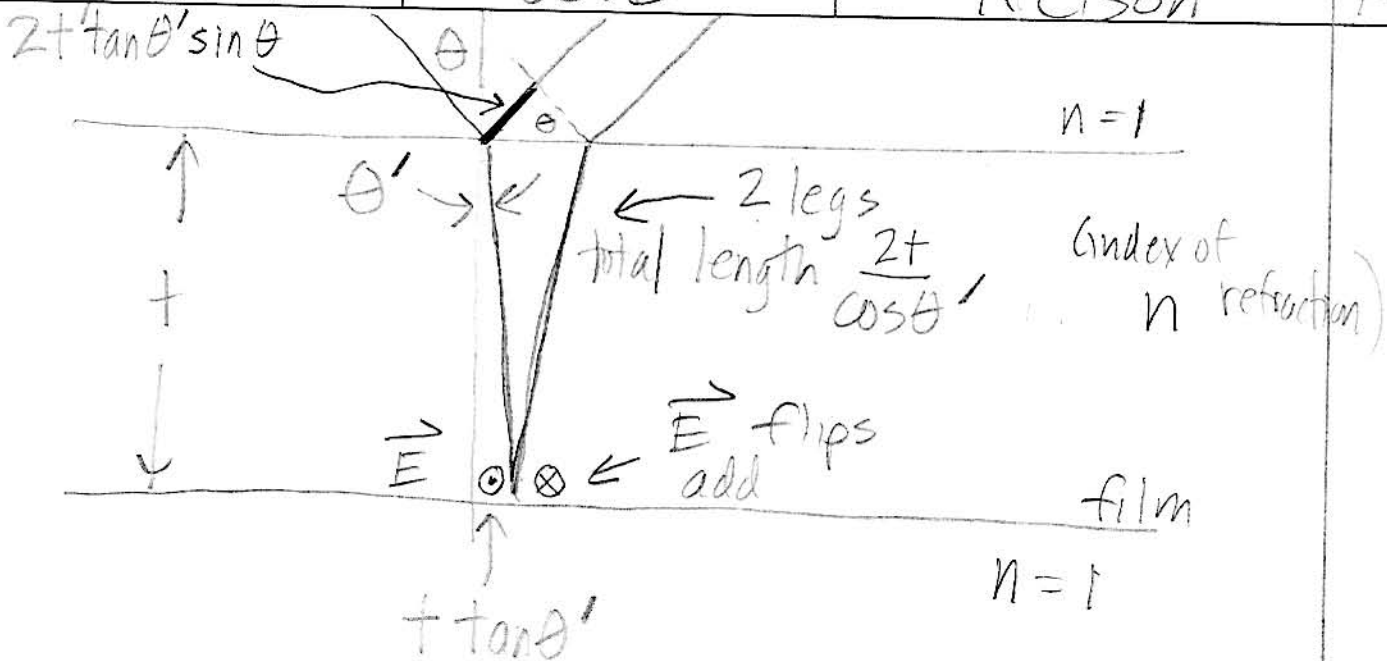 Nelson
2t tanθ' sinθ
θ
θ
n = 1
θ'
2 legs
total length 2t/cosθ'
(index of
n refraction)
t
E⃗
E⃗ flips
add
film
n = 1
t tanθ'